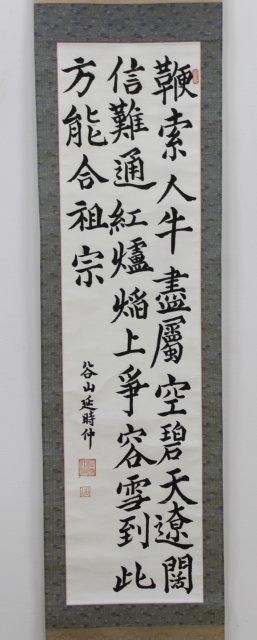 鞭索人牛盡屬空碧天遼闊
信難通紅爐焔上爭容雪到此
方能合祖宗
谷山延時仲